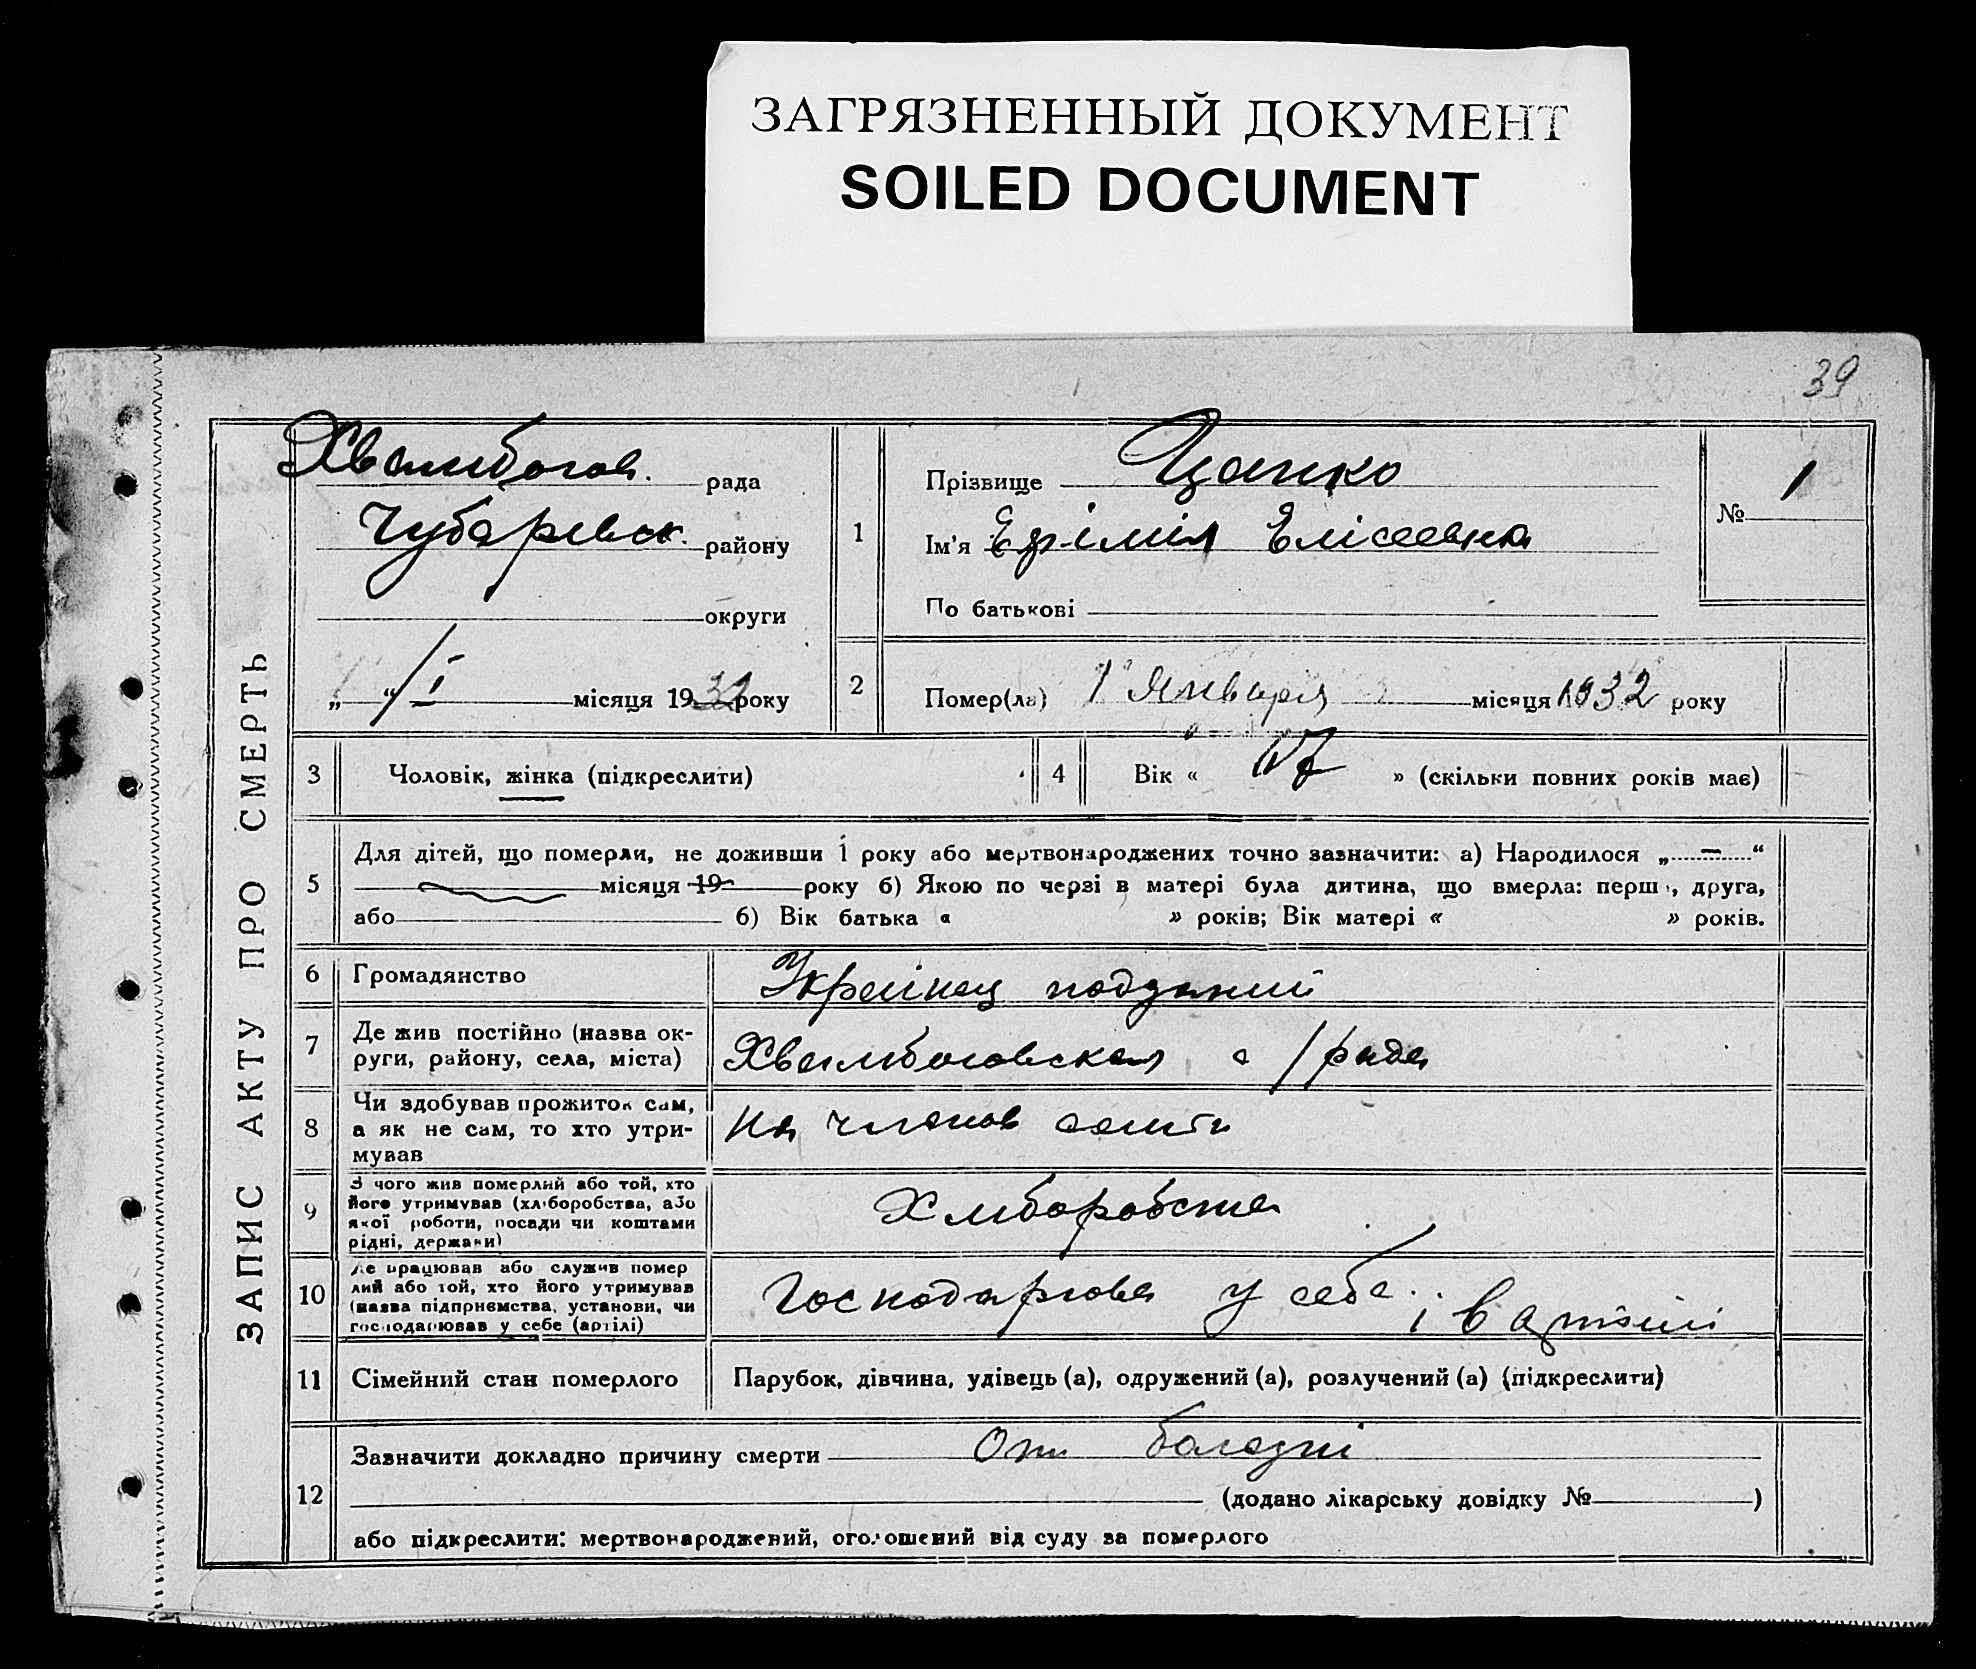 ЗАГРЯЗНЕННЫЙ ДОКУМЕНТ
SOILED DOCUMENT
39
ЗАПИС АКТУ ПРО СМЕРТЬ
Хвалибогов. рада
Чубаревск. району
округи
„ “ /I місяця 1932 року
1
Прізвище Цапко
Ім'я Ефімія Елісеевна
По батькові
№ 1
2 Помер(ла) 1 Января місяця 1932 року
3 Чоловік, жінка (підкреслити)
4 Вік « » (скільки повних років має)
5 Для дітей, що померли, не доживши 1 року або мертвонароджених точно зазначити: а) Народилося „ — “
місяця 19 року б) Якою по черзі в матері була дитина, що вмерла: перша, друга,
або б) Вік батька « » років; Вік матері « » років.
6 Громадянство Украінец подданий
7 Де жив постійно (назва ок-
руги, району, села, міста) Хвалибоговская с/рада
8 Чи здобував прожиток сам,
а як не сам, то хто утри-
мував На членов семти
9 З чого жив померлий або той, хто
його утримував (хліборобства, або
якої роботи, посади чи коштами
рідні, держави) Хлиборобства
10 Де працював або служив помер
лий або той, хто його утримував
(назва підприємства, установи, чи
господарював у себе (артілі) Господарював у себе і в артілі
11 Сімейний стан померлого Парубок, дівчина, удівець (а), одружений (а), розлучений (а) (підкреслити)
12 Зазначити докладно причину смерти От болезні
(додано лікарську довідку № )
або підкреслити: мертвонароджений, оголошений від суду за померлого